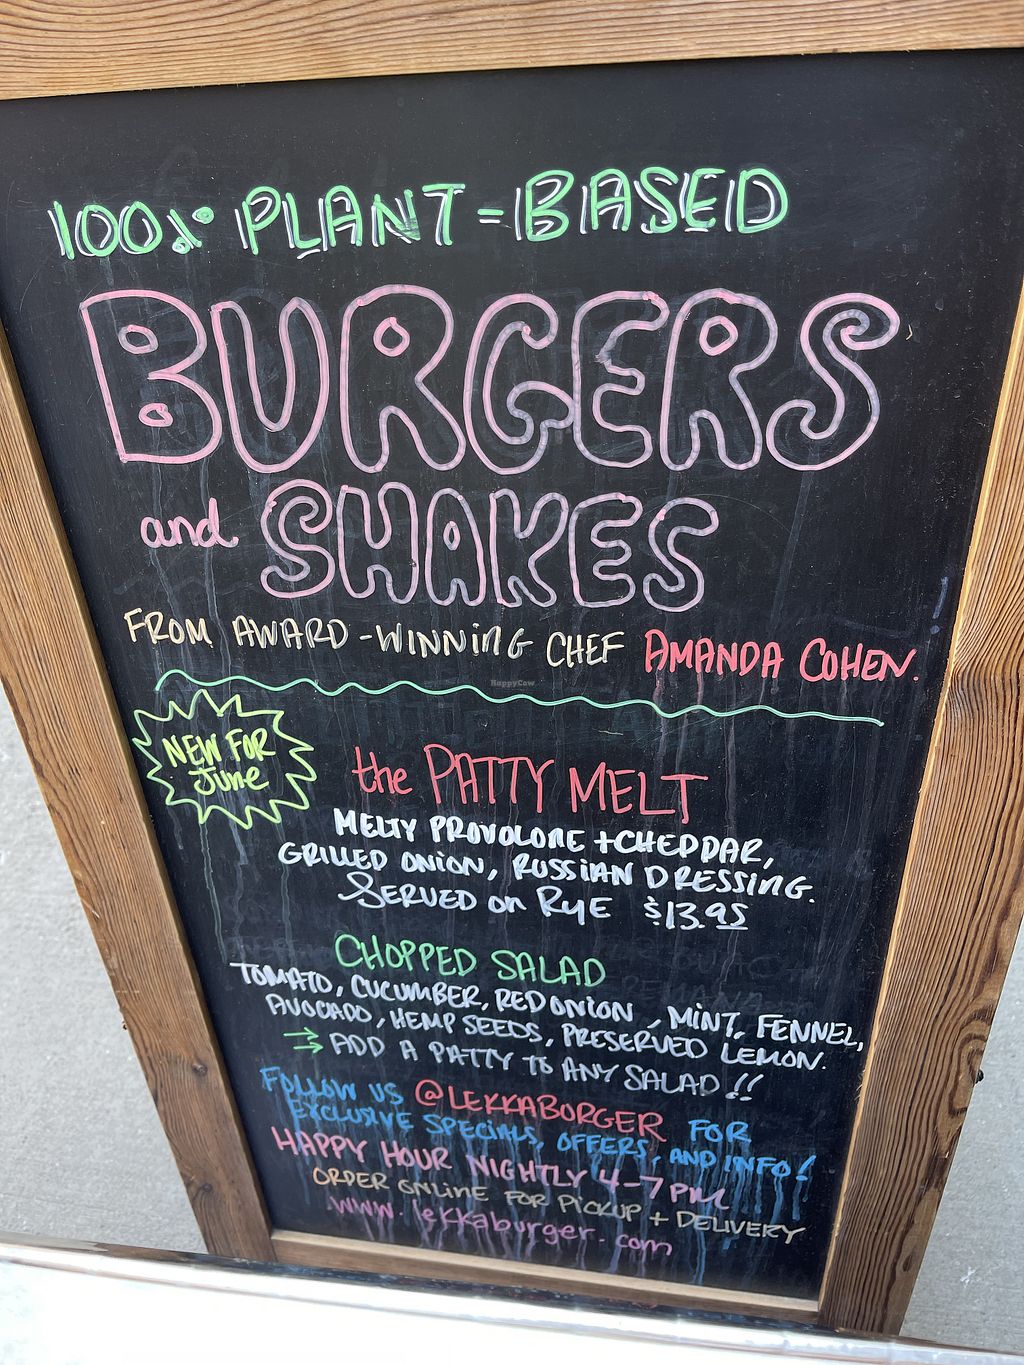 100% PLANT-BASED
BURGERS
and SHAKES
FROM AWARD-WINNING CHEF AMANDA COHEN.
HappyCow
NEW FOR
June
the PATTY MELT
MELTY PROVOLONE + CHEDDAR,
GRILLED ONION, RUSSIAN DRESSING.
SERVED on RYE $13.95
CHOPPED SALAD
TOMATO, CUCUMBER, RED ONION, MINT, FENNEL,
AVOCADO, HEMP SEEDS, PRESERVED LEMON.
→ ADD A PATTY TO ANY SALAD!!
FOLLOW US @LEKKABORGER FOR
EXCLUSIVE SPECIALS, OFFERS, AND INFO!
HAPPY HOUR NIGHTLY 4-7 PM
ORDER ONLINE FOR PICKUP + DELIVERY
www.lekkaburger.com